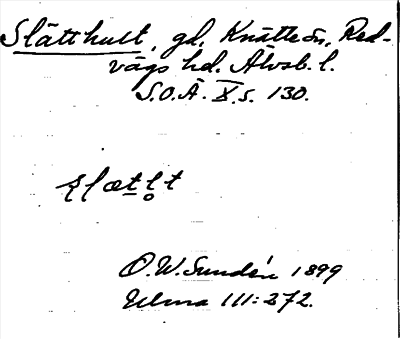 Slätthult, gd, Knätte sn, Red-
vägs hd. Älvsb. l.
S.O.Ä. X s. 130.
O. W. Sundén 1899
Ulma 111:272.